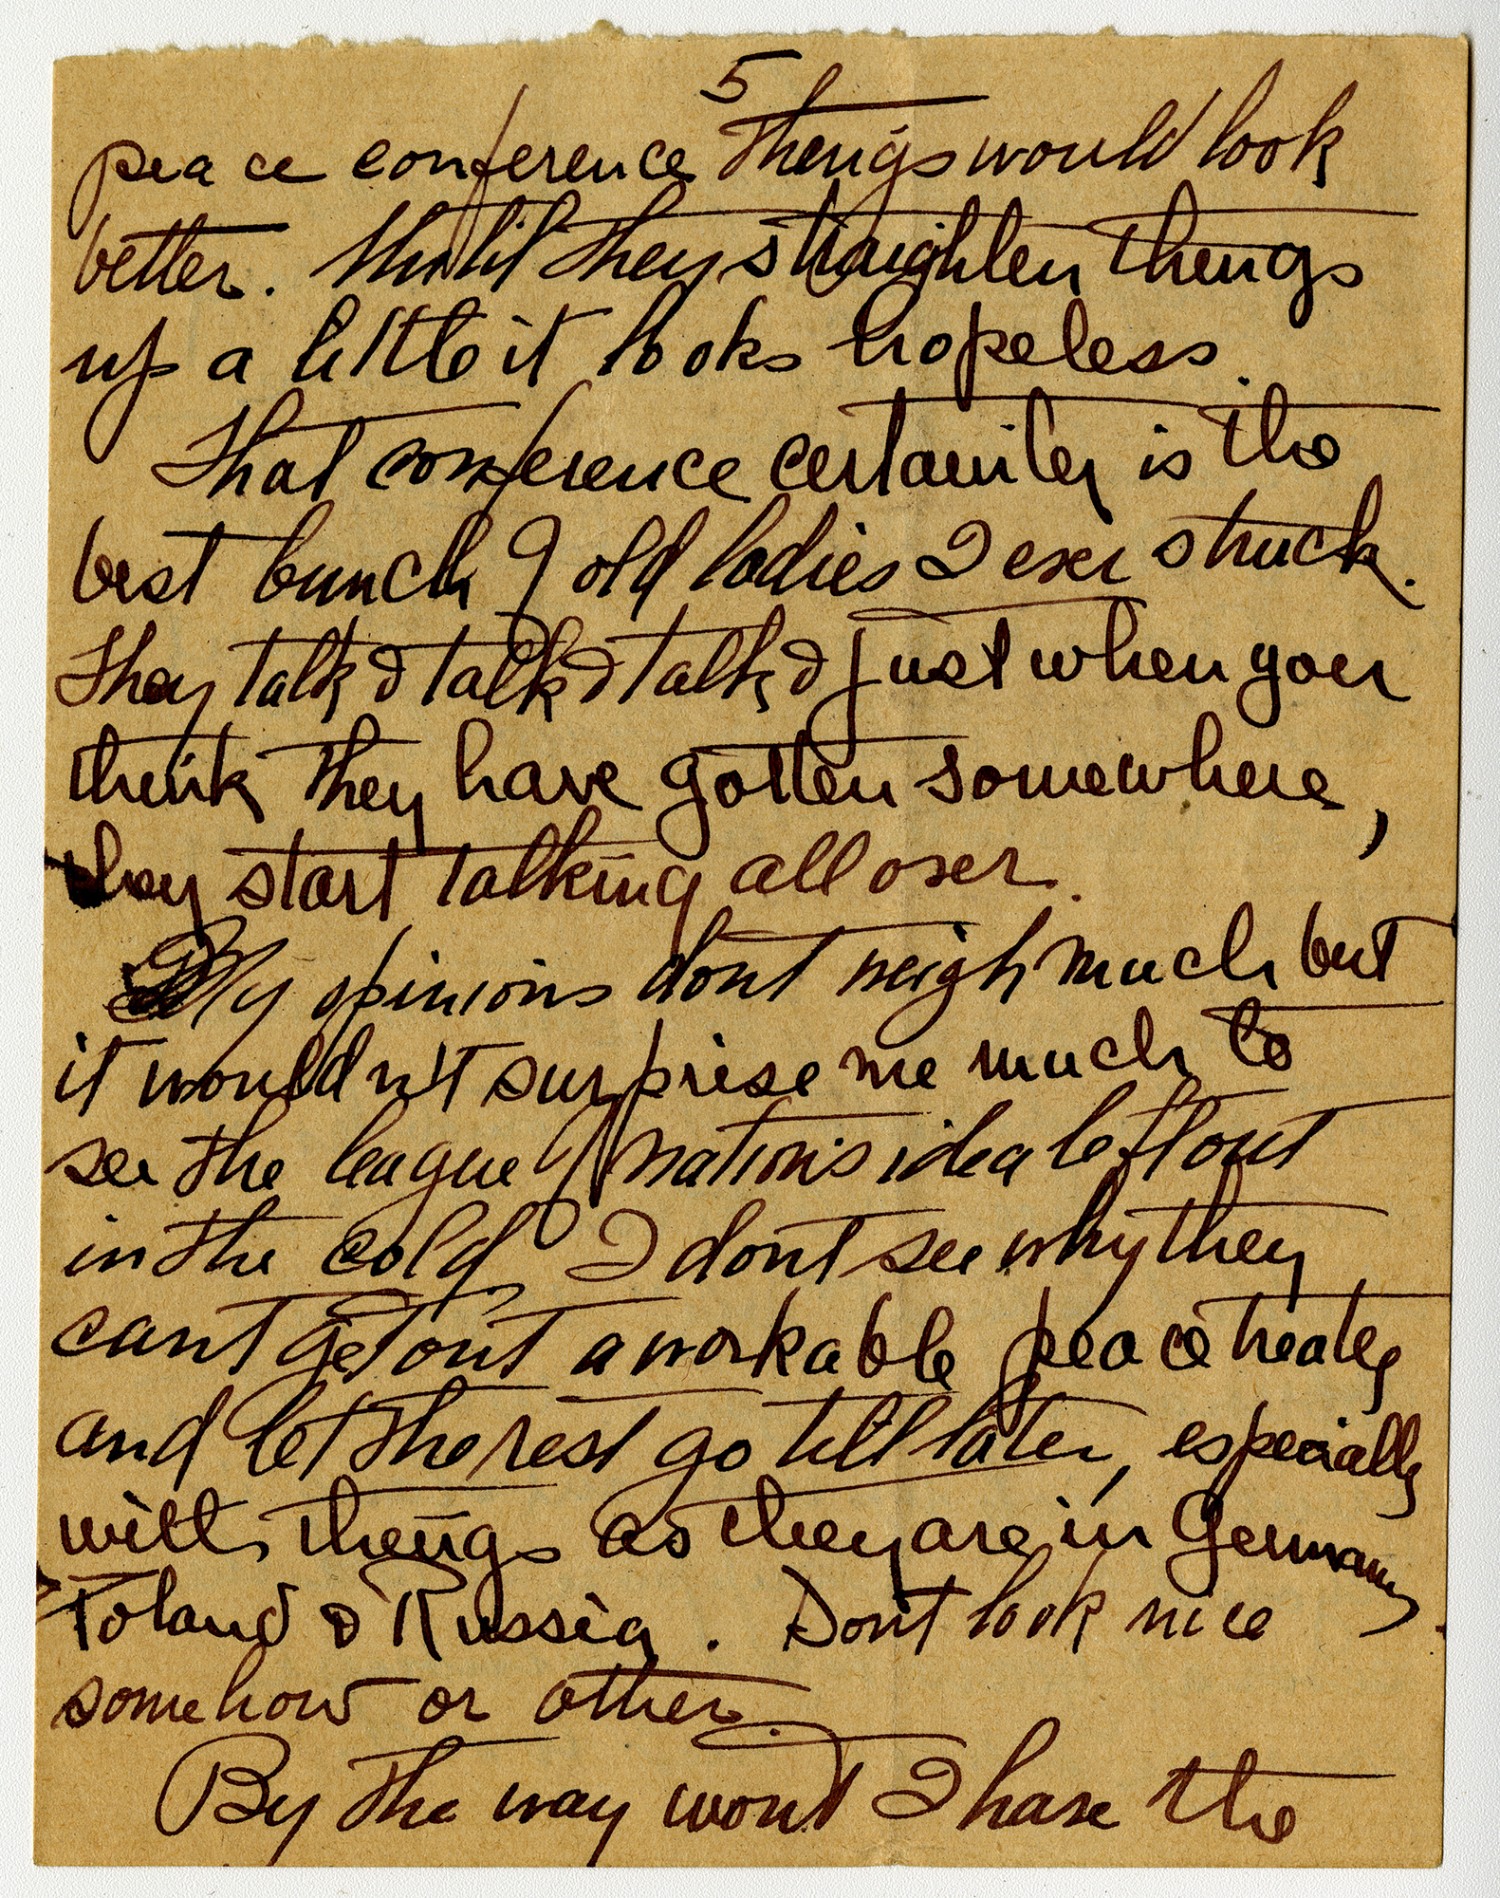 5
peace conference things would look
better. Until they straighten things
up a little it looks hopeless.
That conference certainley is the
best bunch of old ladies I ever struck.
They talk & talk & talk & just when you
think they have gotten somewhere,
they start talking all over.
My opinions dont weigh much but
it wouldn't surprise me much to
see the league of nations idea left out
in the cold, I dont see why they
cant get out a workable peace treaty
and let the rest go till later, especially
with things as they are in Germany
Poland & Russia. Dont look nice
somehow or other.
By the way wont I have the